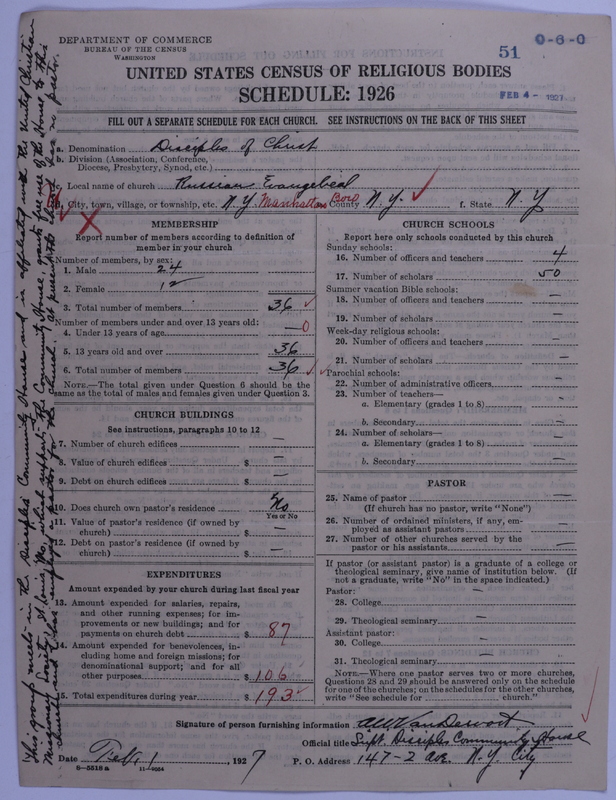 DEPARTMENT OF COMMERCE
BUREAU OF THE CENSUS
WASHINGTON
51
0-6-0
FEB 4 - 1927
UNITED STATES CENSUS OF RELIGIOUS BODIES
SCHEDULE: 1926
FILL OUT A SEPARATE SCHEDULE FOR EACH CHURCH. SEE INSTRUCTIONS ON THE BACK OF THIS SHEET
a. Denomination Disciples of Christ
b. Division (Association, Conference,
Diocese, Presbytery, Synod, etc.)
c. Local name of church Russian Evangelical
City, town, village, or township, etc. N.Y. Manhattan Boro County N.Y. f. State N.Y
MEMBERSHIP
Report number of members according to definition of
member in your church
Number of members, by sex:
1. Male 24
2. Female 12
3. Total number of members 36
Number of members under and over 13 years old:
4. Under 13 years of age — 0
5. 13 years old and over 36
6. Total number of members 36
NOTE.—The total given under Question 6 should be the
same as the total of males and females given under Question 3.
CHURCH BUILDINGS
See instructions, paragraphs 10 to 12
7. Number of church edifices —
8. Value of church edifices $ —
9. Debt on church edifices $ —
10. Does church own pastor's residence No
Yes or No
11. Value of pastor's residence (if owned by
church) $ —
12. Debt on pastor's residence (if owned by
church) $ —
EXPENDITURES
Amount expended by your church during last fiscal year
13. Amount expended for salaries, repairs,
and other running expenses; for im-
provements or new buildings; and for
payments on church debt $ 87
14. Amount expended for benevolences, in-
cluding home and foreign missions; for
denominational support; and for all
other purposes $ 106
15. Total expenditures during year $ 193
CHURCH SCHOOLS
Report here only schools conducted by this church
Sunday schools:
16. Number of officers and teachers 4
17. Number of scholars 50
Summer vacation Bible schools:
18. Number of officers and teachers —
19. Number of scholars —
Week-day religious schools:
20. Number of officers and teachers —
21. Number of scholars —
Parochial schools:
22. Number of administrative officers —
23. Number of teachers—
a. Elementary (grades 1 to 8) —
b. Secondary —
24. Number of scholars—
a. Elementary (grades 1 to 8) —
b. Secondary —
PASTOR
25. Name of pastor —
(If church has no pastor, write "None")
26. Number of ordained ministers, if any, em-
ployed as assistant pastors —
27. Number of other churches served by the
pastor or his assistants —
If pastor (or assistant pastor) is a graduate of a college or
theological seminary, give name of institution below. (If
not a graduate, write "No" in the space indicated.)
Pastor:
28. College —
29. Theological seminary —
Assistant pastor:
30. College —
31. Theological seminary —
NOTE.—Where one pastor serves two or more churches,
Questions 28 and 29 should be answered only on the schedule
for one of the churches; on the schedules for the other churches,
write "See schedule for church."
Signature of person furnishing information
Official title Supt. Disciples Community House
Date Feb. 1, 1927
P. O. Address 147-2 ave. N.Y. City
8—5518 a 11—9054
This group meets in the Disciples Community House and is affiliated with the United Christian
Missionary Society, St. Louis, Mo. which supports the Community House, grants free use of the House to this
church and also employs a pastor for the church. At present the church has no pastor.